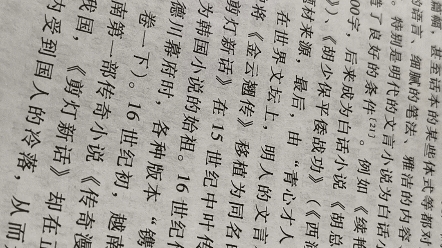 篇幅，甚至话本的某些体式等都对
的语言、细腻的笔法、雅洁的内容
。特别是明代的文言小说为白话小
了良好的条件[21]。例如《绫
00字，后来成为白话小说《胡总
》、《胡少保平倭战功》（《西
题材来源，最后，由“青心才人
在世界文坛上，明人的文言
将《金云翘传》移植为同名
剪灯新话》在15世纪中叶传
为韩国小说的始祖。16世纪
德川幕府时，各种版本“镌
卷一下）。16世纪初，越
南第一部传奇小说《传奇漫
我国，《剪灯新话》却在正
内受到国人的冷落，从而